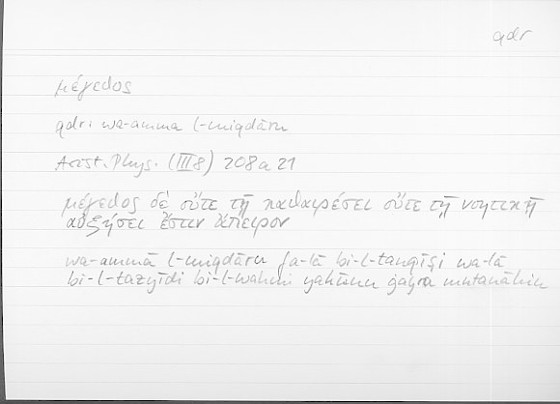 qdr
μέγεθος
qdr: wa-amma l-miqdāru
Arist. Phys. (III 8) 208a21
μέγεθος δὲ οὔτε τῇ καθαιρέσει οὔτε τῇ νοητικῇ
αὐξήσει ἔστιν ἄπειρον
wa-ammā l-miqdāru fa-lā bi-l-tanqīṣi wa-lā
bi-l-tazyīdi bi-l-wahmi yakūnu ġayra mutanāhin